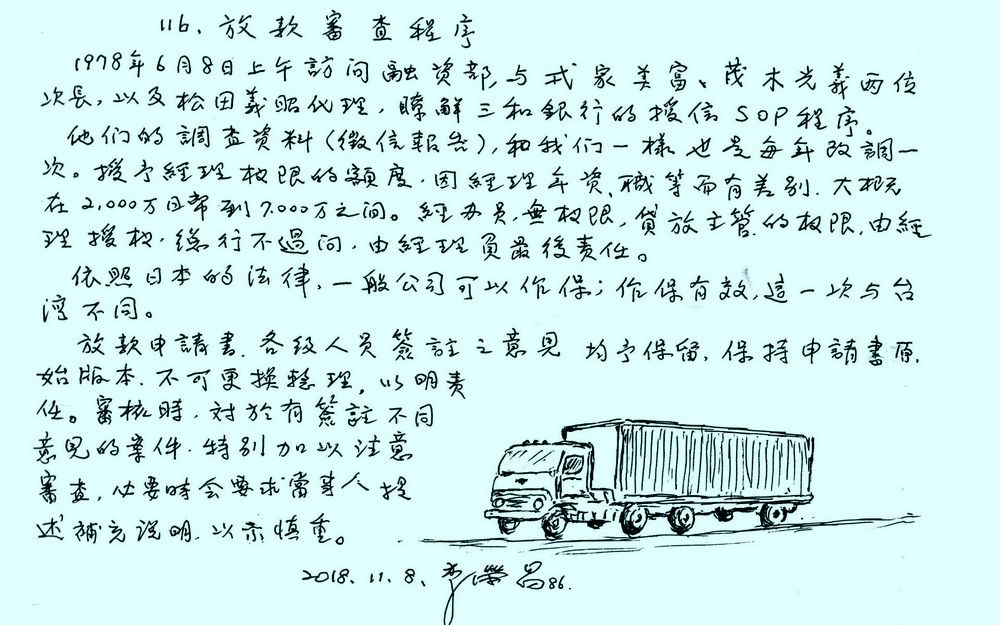 116. 放款審查程序
1978年6月8日上午訪問融資部,与式家美富、茂木光義兩位
次長,以及松田義昭代理,瞭解三和銀行的授信SOP程序。
他们的調查資料(徵信報告),和我们一樣也是每年改調一
次。授予經理权限的額度,因經理年資、職等而有差別.大概
在2,000万日幣到7.000万之间。經办員,無权限,貸放主管的权限,由經
理授权,總行不過问,由經理負最後責任。
依照日本的法律,一般公司可以作保;作保有效,這一次与台
湾不同。
放款申請書.各级人員簽註之意見均予保留.保持申請書原
始版本.不可更換整理,以明責
任。審核時.对於有簽註不同
意見的案件.特別加以注意
審查,必要時会要求當事人提
述補充說明.以示慎重。
2018.11.8、李榮昌86.